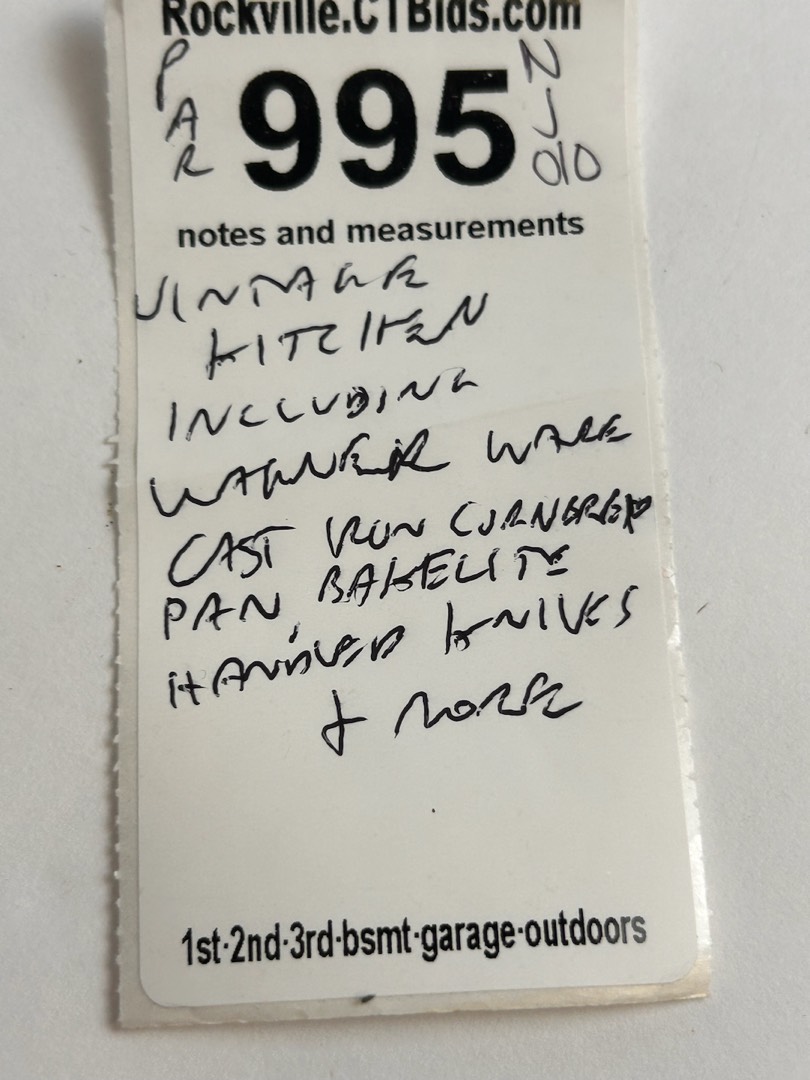 Rockville.CTBids.com
PAR 995 NJ010
notes and measurements
VINTAGE
KITCHEN
INCLUDING
WAGNER WARE
CAST IRON CORNBREAD
PAN, BAKELITE
HANDLED KNIVES
& MORE
1st·2nd·3rd·bsmt·garage·outdoors